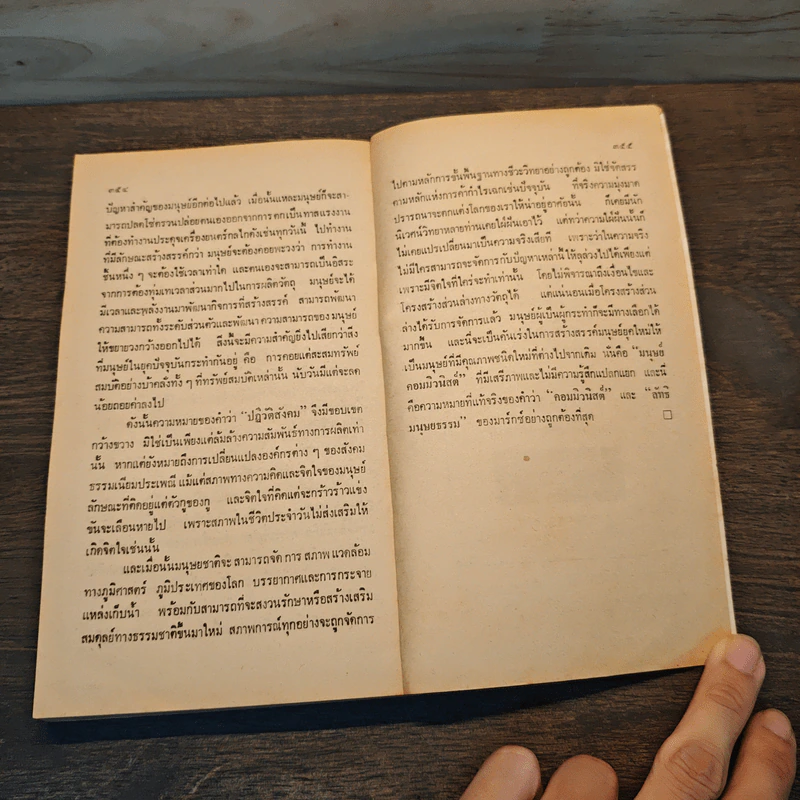 ๓๕๔
ปัญหาสำคัญของมนุษย์อีกต่อไปแล้ว เมื่อนั้นแหละมนุษย์ก็จะสา-
มารถปลดโซ่ตรวนปล่อยตนเองออกจากการตกเป็นทาสแรงงาน
ที่ต้องทำงานประดุจเครื่องยนตร์กลไกดังเช่นทุกวันนี้ ไปทำงาน
ที่มีลักษณะสร้างสรรค์กว่า มนุษย์จะต้องคอยพะวงว่า การทำงาน
ชิ้นหนึ่ง ๆ จะต้องใช้เวลาเท่าใด และตนเองจะสามารถเป็นอิสระ
จากการต้องทุ่มเทเวลาส่วนมากไปในการผลิตวัตถุ มนุษย์จะได้
มีเวลาและพลังงานมาพัฒนากิจการที่สร้างสรรค์ สามารถพัฒนา
ความสามารถทั้งระดับส่วนตัวและพัฒนาความสามารถของมนุษย์
ให้ขยายวงกว้างออกไปได้ สิ่งนี้จะมีความสำคัญยิ่งไปเสียกว่าสิ่ง
ที่มนุษย์ในยุคปัจจุบันกระทำกันอยู่ คือ การคอยแต่สะสมทรัพย์
สมบัติอย่างบ้าคลั่งทั้ง ๆ ที่ทรัพย์สมบัติเหล่านั้น นับวันมีแต่จะลด
น้อยถอยค่าลงไป
ดังนั้นความหมายของคำว่า “ปฏิวัติสังคม” จึงมีขอบเขต
กว้างขวาง มิใช่เป็นเพียงแต่ล้มล้างความสัมพันธ์ทางการผลิตเท่า
นั้น หากแต่ยังหมายถึงการเปลี่ยนแปลงองค์กรต่าง ๆ ของสังคม
ธรรมเนียมประเพณี แม้แต่สภาพทางความคิดและจิตใจของมนุษย์
ลักษณะที่คิดอยู่แต่ตัวกูของกู และจิตใจที่คิดแต่จะกร้าวร้าวแข่ง
ขันจะเลือนหายไป เพราะสภาพในชีวิตประจำวันไม่ส่งเสริมให้
เกิดจิตใจเช่นนั้น
และเมื่อนั้นมนุษยชาติจะสามารถจัดการ สภาพแวดล้อม
ทางภูมิศาสตร์ ภูมิประเทศของโลก บรรยากาศและการกระจาย
แหล่งเก็บน้ำ พร้อมกับสามารถที่จะสงวนรักษาหรือสร้างเสริม
สมดุลย์ทางธรรมชาติขึ้นมาใหม่ สภาพการณ์ทุกอย่างจะถูกจัดการ
๓๕๕
ไปตามหลักการขั้นพื้นฐานทางชีวะวิทยาอย่างถูกต้อง มิใช่จัดสรร
ตามหลักแห่งการค้ากำไรเฉกเช่นปัจจุบัน ที่จริงความมุ่งมาด
ปรารถนาจะตกแต่งโลกของเราให้น่าอยู่อาศัยนั้น ก็เคยมีนัก
นิเวศน์วิทยาหลายท่านเคยใฝ่ฝันเอาไว้ แต่ทว่าความใฝ่ฝันนั้นก็
ไม่เคยแปรเปลี่ยนมาเป็นความจริงเสียที เพราะว่าในความจริง
ไม่มีใครสามารถจะจัดการกับปัญหาเหล่านี้ให้ลุล่วงไปได้เพียงแต่
เพราะมีจิตใจที่ใคร่จะทำเท่านั้น โดยไม่พิจารณาถึงเงื่อนไขและ
โครงสร้างส่วนล่างทางวัตถุได้ แต่แน่นอนเมื่อโครงสร้างส่วน
ล่างได้รับการจัดการแล้ว มนุษย์ผู้เป็นผู้กระทำก็จะมีทางเลือกได้
มากขึ้น และนี่จะเป็นคันเร่งในการสร้างสรรค์มนุษย์ยุคใหม่ให้
เป็นมนุษย์ที่มีคุณภาพชนิดใหม่ที่ต่างไปจากเดิม นั่นคือ “มนุษย์
คอมมิวนิสต์” ที่มีเสรีภาพและไม่มีความรู้สึกแปลกแยก และนี่
คือความหมายที่แท้จริงของคำว่า “คอมมิวนิสต์” และ “ลัทธิ
มนุษยธรรม” ของมาร์กซ์อย่างถูกต้องที่สุด □